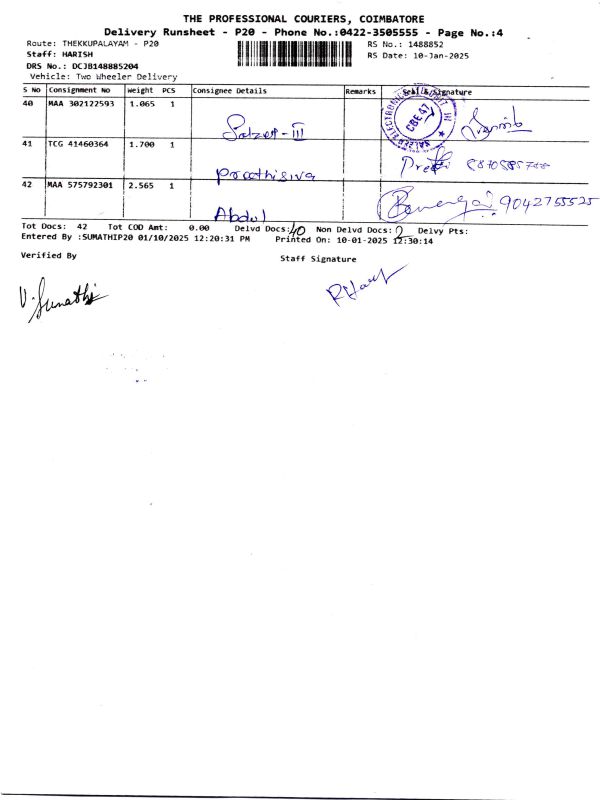 THE PROFESSIONAL COURIERS, COIMBATORE
Delivery Runsheet - P20 - Phone No.:0422-3505555 - Page No.:4
Route: THEKKUPALAYAM - P20 RS No.: 1488852
Staff: HARISH RS Date: 10-Jan-2025
DRS No.: DCJB148885204
Vehicle: Two Wheeler Delivery
S No Consignment No Weight PCS Consignee Details Remarks Seal & Signature
40 MAA 302122593 1.065 1
Salzer-III
41 TCG 41460364 1.700 1
Preethisiva
42 MAA 575792301 2.565 1
9042755525
Abdul
Tot Docs: 42 Tot COD Amt: 0.00 Delvd Docs: 40 Non Delvd Docs: 2 Delvy Pts:
Entered By :SUMATHIP20 01/10/2025 12:20:31 PM Printed On: 10-01-2025 12:30:14
Verified By Staff Signature
V. Sumathi